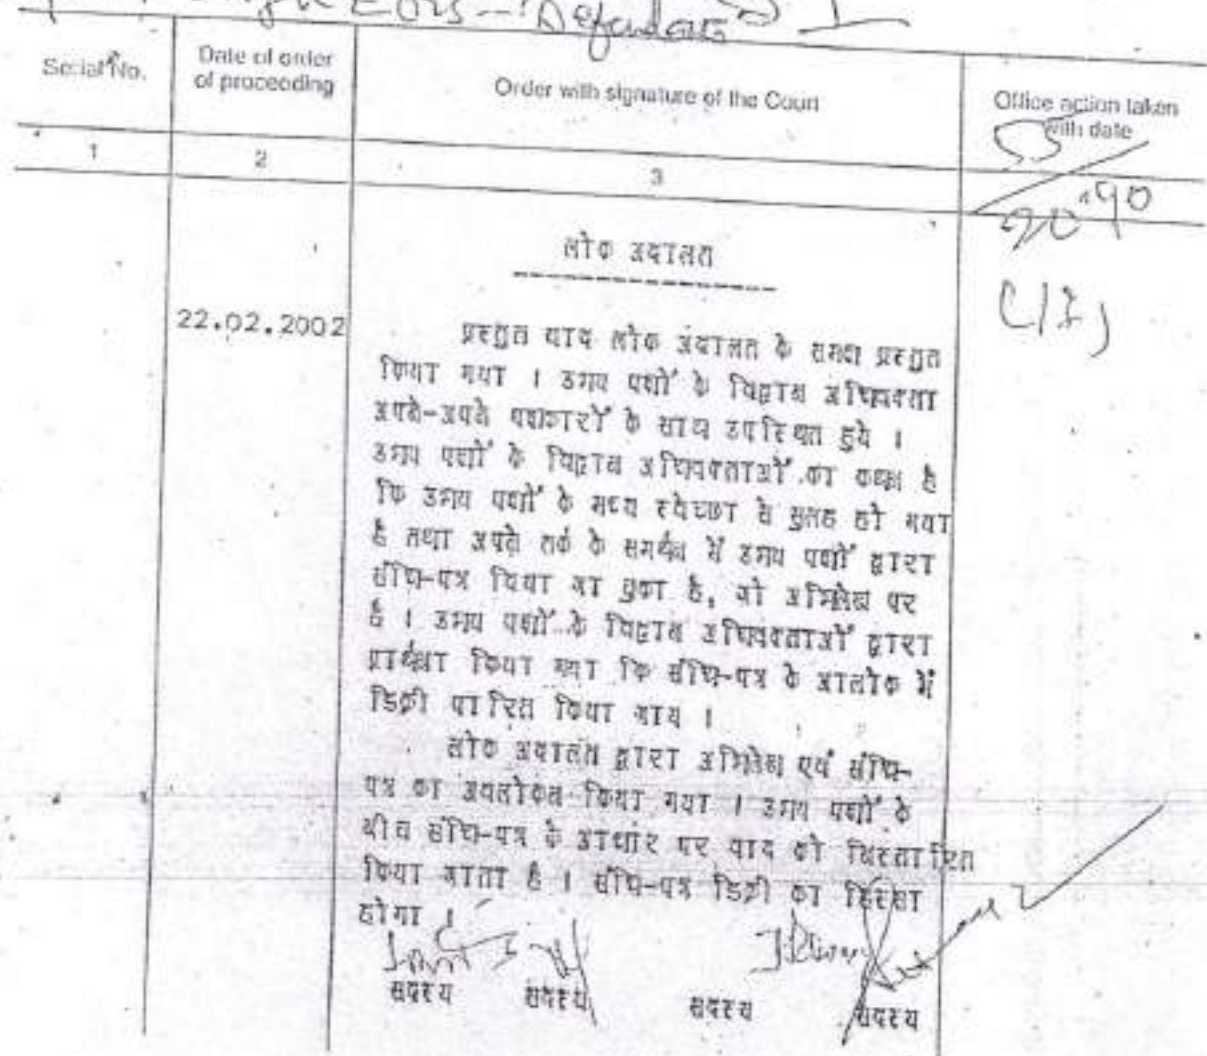 Defendants
Serial No.
Date of order
of proceeding
Order with signature of the Court
Office action taken
with date
1
2
3
55
20.90
लोक अदालत
22.02.2002
प्रस्तुत वाद लोक अदालत के समक्ष प्रस्तुत
किया गया । उभय पक्षों के विद्वान अधिवक्ता
अपने-अपने पक्षकारों के साथ उपस्थित हुये ।
उभय पक्षों के विद्वान अधिवक्ताओं का कथन है
कि उभय पक्षों के मध्य स्वेच्छा से सुलह हो गया
है तथा अपने तर्क के समर्थन में उभय पक्षों द्वारा
संधि-पत्र दिया जा चुका है, जो अभिलेख पर
है । उभय पक्षों के विद्वान अधिवक्ताओं द्वारा
प्रार्थना किया गया कि संधि-पत्र के आलोक में
डिक्री पारित किया जाय ।
लोक अदालत द्वारा अभिलेख एवं संधि-
पत्र का अवलोकन किया गया । उभय पक्षों के
बीच संधि-पत्र के आधार पर वाद को निस्तारित
किया जाता है । संधि-पत्र डिक्री का हिस्सा
होगा ।
सदस्य सदस्य सदस्य सदस्य